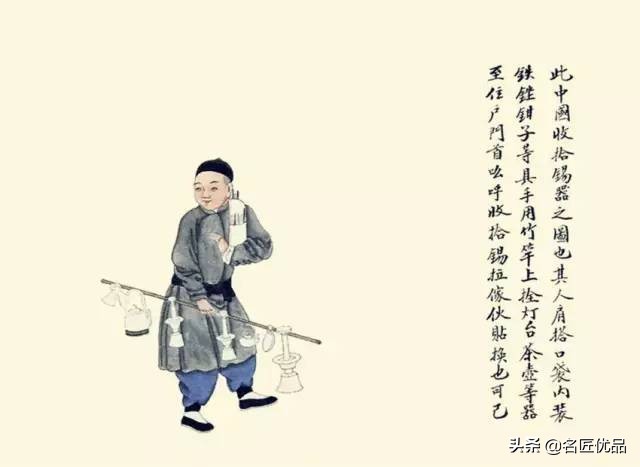 此中國收拾錫器之圖也其人肩搭口袋内裝
鉄銼鉗子等具手用竹竿上拴灯台茶壺等器
至住户門首吆呼收拾錫拉傢伙貼換也可已
头条 @名匠优品